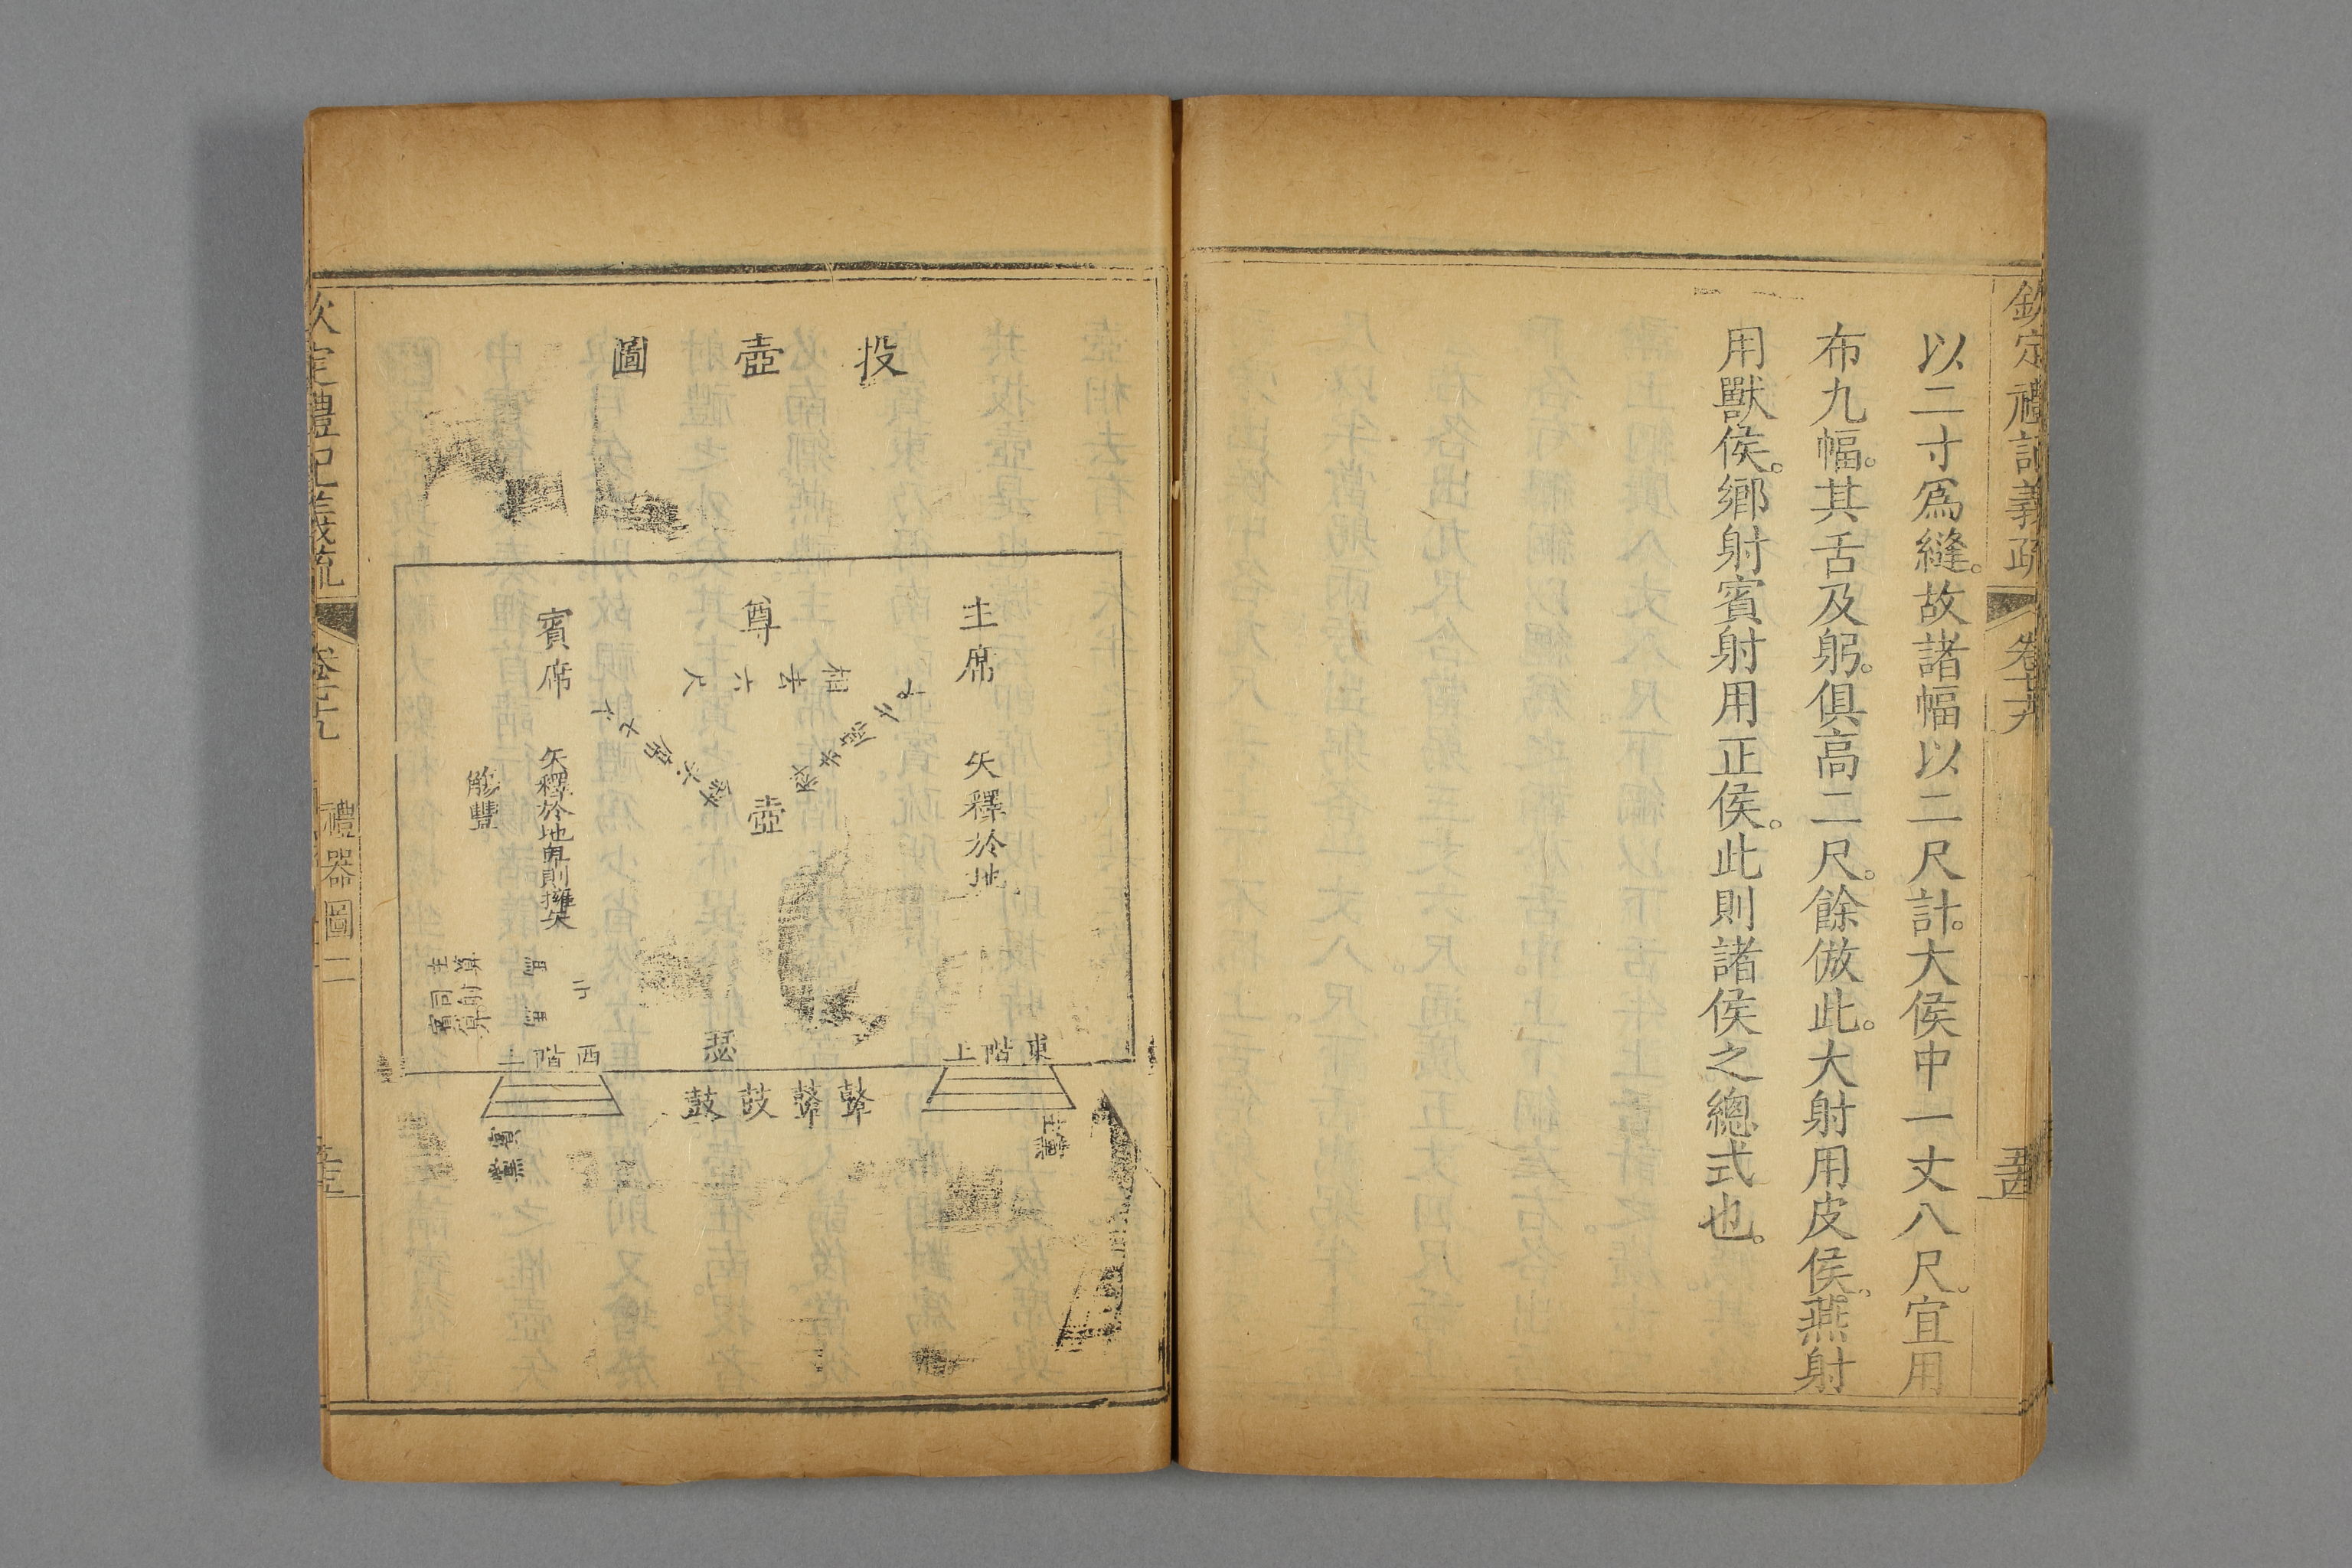 欽定禮記義疏
以二寸爲縫。故諸幅以二尺計。大侯中一丈八尺。宜用
布九幅。其舌及躬。俱高二尺。餘倣此。大射用皮侯。燕射
用獸侯。鄉射賓射用正侯。此則諸侯之總式也。
投壺圖
主席
矢釋於地
尊
相去六尺
壺
賓席
矢釋於地卑則擁矢
觶豐
瑟
東階上
西階上
鼓鼓鼙鼙
賓黨
主黨
定禮記義疏
禮器圖二